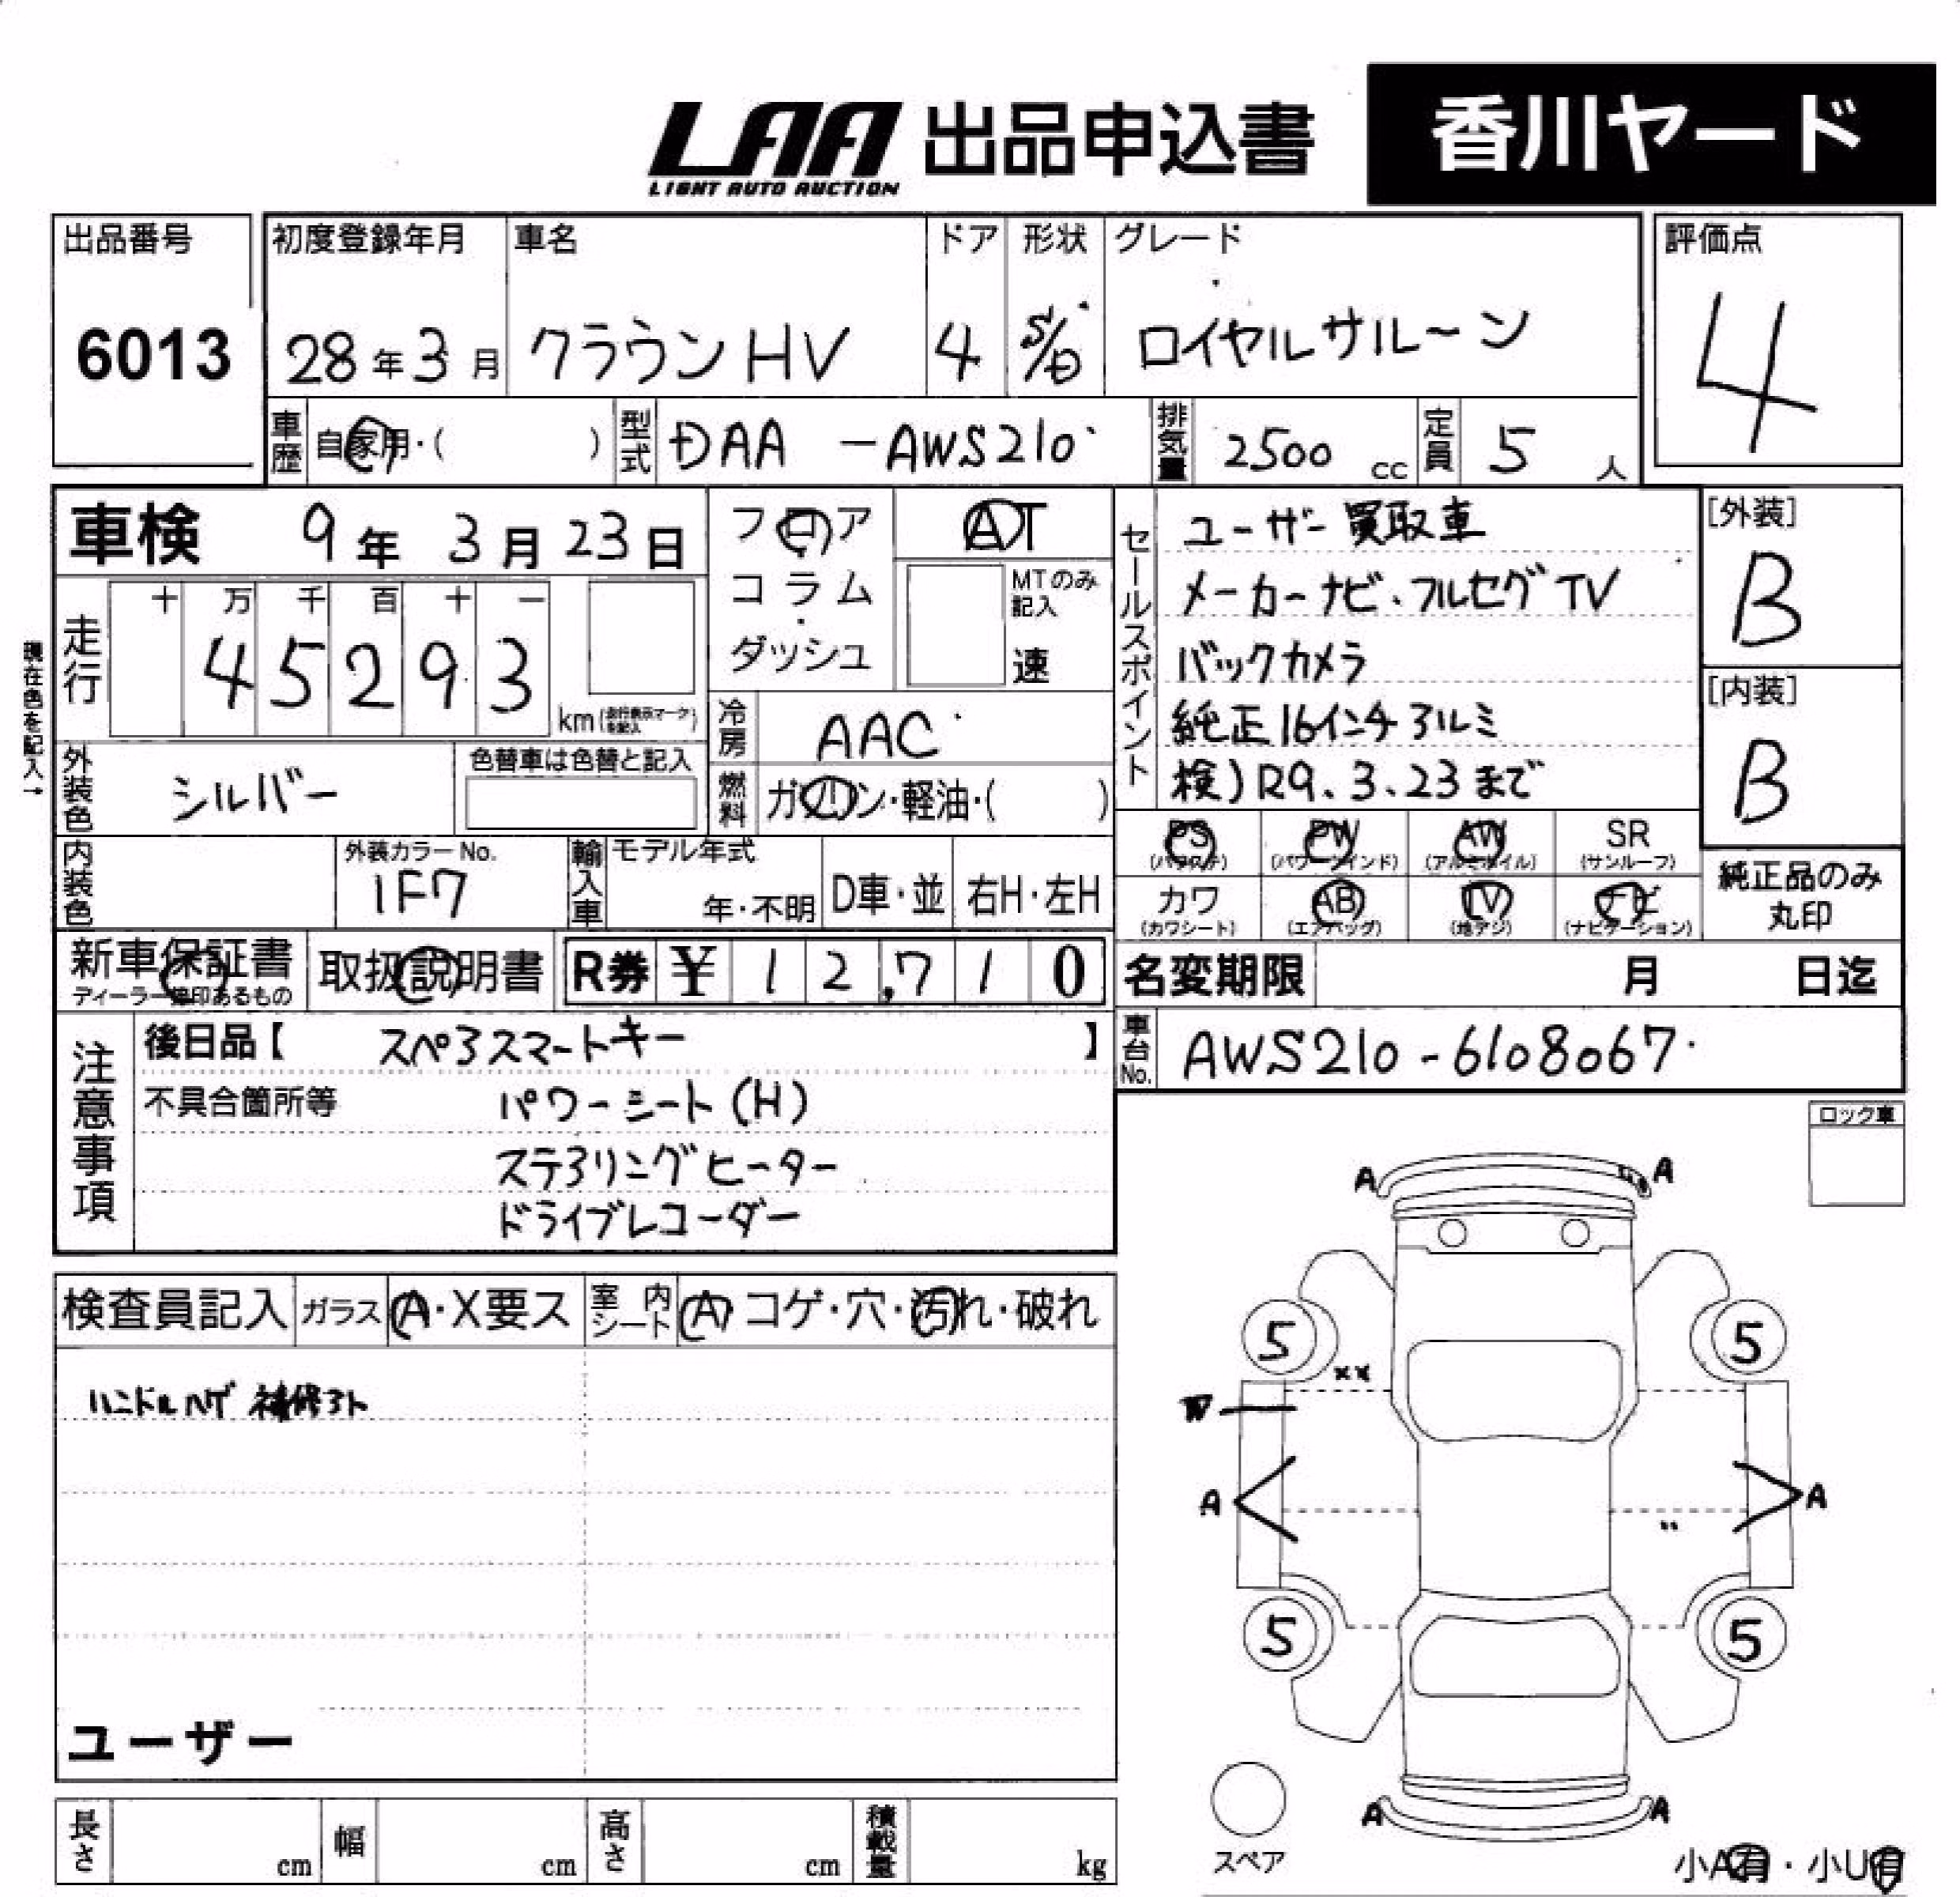 LAA 出品申込書 香川ヤード
LIGHT AUTO AUCTION
出品番号 初度登録年月 車名 ドア 形状 グレード 評価点
6013 28年3月 クラウンHV 4 S/D ロイヤルサルーン 4
車歴 自家用・( ) 型式 DAA-AWS210 排気量 2500cc 定員 5人
車検 9年3月23日 フロア AT
コラム MTのみ記入
ダッシュ 速
走行 十 万 千 百 十 一
45293 km
現在色を記入→
外装色 シルバー 色替車は色替と記入
冷房 AAC
燃料 ガソリン・軽油・( )
内装色 外装カラーNo. 1F7 輸入車 モデル年式 年・不明 D車・並 右H・左H
新車保証書 取扱説明書 R券 ¥12,710
セールスポイント
ユーザー買取車
メーカーナビ、フルセグTV
バックカメラ
純正16インチアルミ
検)R9.3.23まで
[外装]
B
[内装]
B
PS PW AW SR
(パワステ) (パワーウインド) (アルミホイル) (サンルーフ)
カワ AB TV ナビ
(カワシート) (エアバッグ) (地デジ) (ナビゲーション)
純正品のみ
丸印
名変期限 月 日迄
車台No. AWS210-6108067
注意事項
後日品【 スペアスマートキー 】
不具合箇所等 パワーシート(H)
ステアリングヒーター
ドライブレコーダー
検査員記入 ガラス A・X要ス 室内シート A コゲ・穴・汚れ・破れ
ハンドルハゲ 補修アト
ユーザー
長さ cm 幅 cm 高さ cm 積載量 kg
ロック車
A A
5 5
××
W
A A
5 5
A A
スペア
小A有・小U有